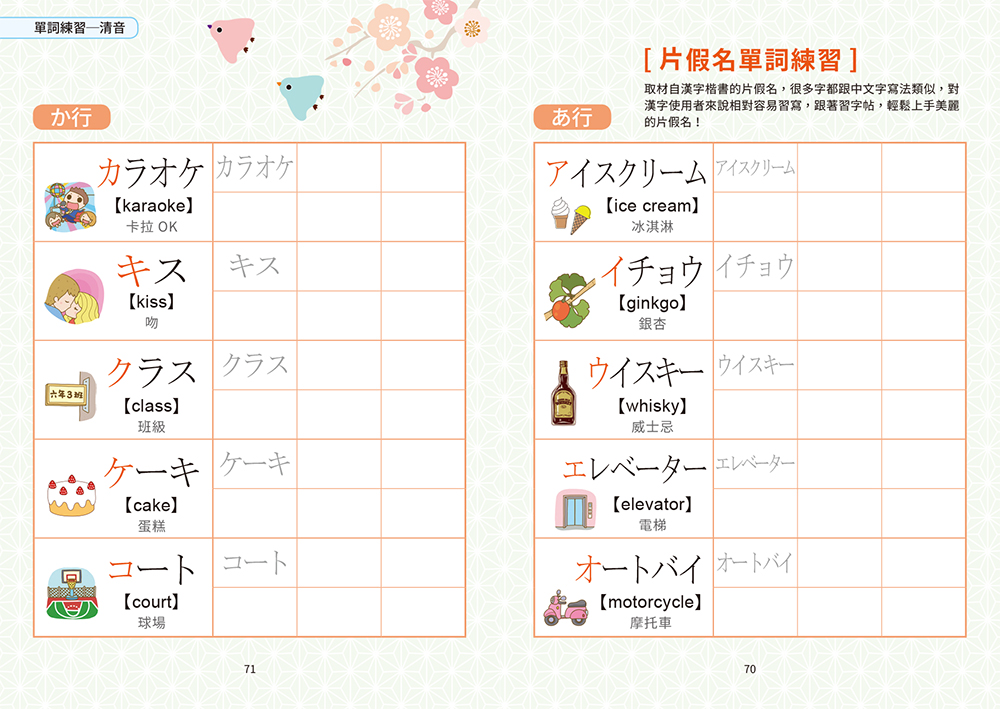 單詞練習—清音
か行
カラオケ
カラオケ
【karaoke】
卡拉 OK
キス
キス
【kiss】
吻
クラス
クラス
六年3班
【class】
班級
ケーキ
ケーキ
【cake】
蛋糕
コート
コート
【court】
球場
71
[ 片假名單詞練習 ]
取材自漢字楷書的片假名，很多字都跟中文字寫法類似，對
漢字使用者來說相對容易習寫，跟著習字帖，輕鬆上手美麗
的片假名！
あ行
アイスクリーム
アイスクリーム
【ice cream】
冰淇淋
イチョウ
イチョウ
【ginkgo】
銀杏
ウイスキー
ウイスキー
【whisky】
威士忌
エレベーター
エレベーター
【elevator】
電梯
オートバイ
オートバイ
【motorcycle】
摩托車
70